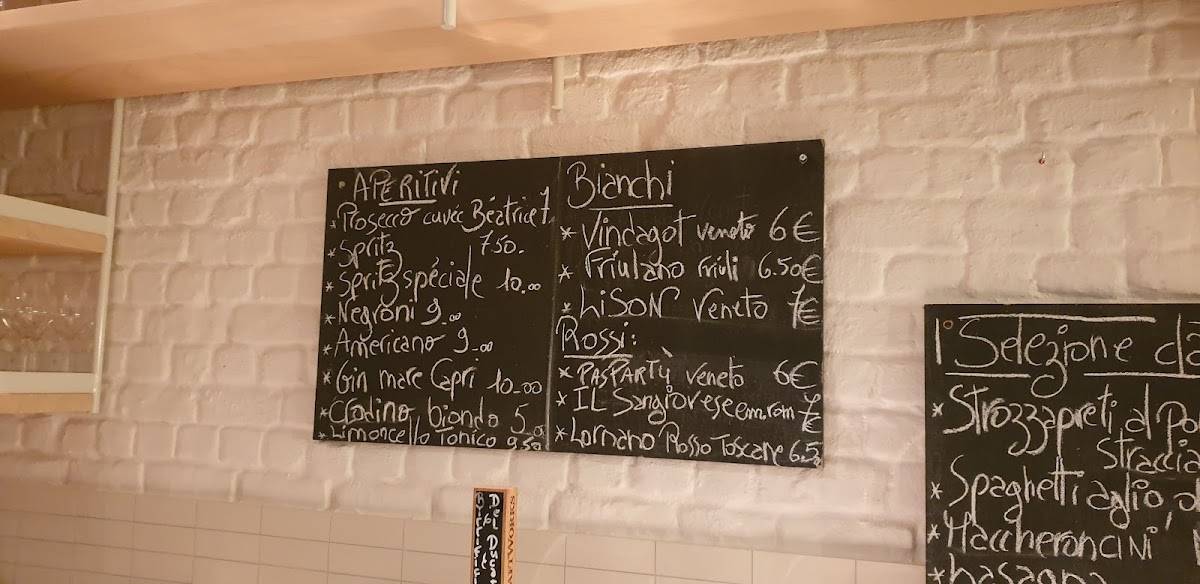 APERITIVI
* Prosecco cuvée Béatrice 7.
* Spritz 750.
* Spritz spéciale 10.00
* Negroni 9.00
* Americano 9.00
* Gin mare Capri 10.00
* Crodino biondo 5.00
* Limoncello Tonico 9.50
Bianchi
* Vindagot veneto 6€
* Friulano friuli 6.50€
* LiSON Veneto 7€
Rossi:
* PASPARTÙ veneto 6€
* IL Sangiovese em.rom 7€
* Lornano Rosso Toscane 6.5
Selezione
* Strozzapreti al
Straccia
* Spaghetti aglio,
* Maccheroncini
* Lasagna